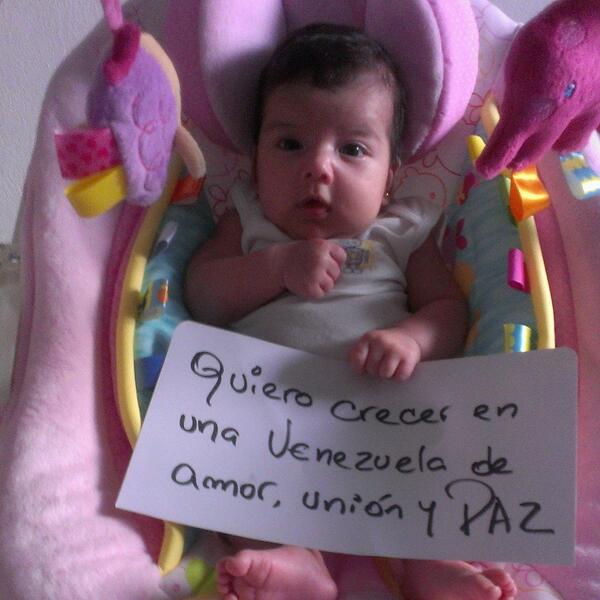 Quiero crecer en
una Venezuela de
amor, unión y PAZ